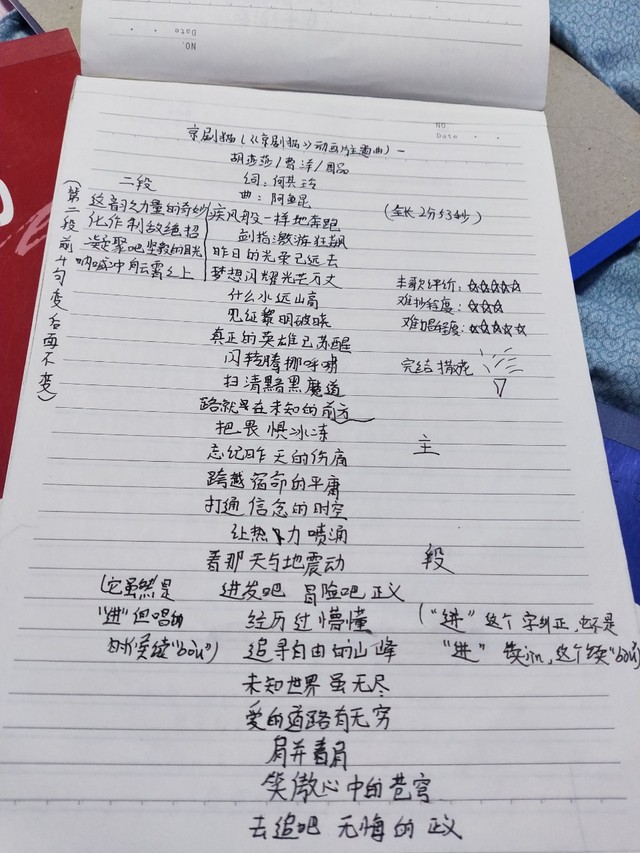 NO.
Date
NO
Date
京剧猫(《京剧猫》动画主题曲)-
胡莎莎/曹洋/周品
词:何其玲
曲:阿鱼昆
(全长2分34秒)
二段
(第二段前4句变后面不变)
这韵之力量的奇妙
化作利爪绝招
凝聚吧坚毅的目光
呐喊冲向云霄之上
疾风般一样地奔跑
剑指激游狂飙
昨日的光荣已远去
梦想闪耀光芒万丈
什么水远山高
见证黎明破晓
真正的英雄已苏醒
闪转腾挪呼啸
扫清黯黑魔道
路就是在未知的前方
把畏惧冰冻
忘记昨天的伤痛
跨越宿命的平庸
打通信念的时空
让热力喷涌
看那天与地震动
本歌评价:☆☆☆☆☆
难抄程度:☆☆☆
难唱程度:☆☆☆☆
完结 撒花
主
段
进发吧 冒险吧 正义
经历过懵懂
追寻自由的山峰
未知世界虽无尽
爱的道路有无穷
肩并着肩
笑傲心中的苍穹
去追吧 无悔的 正义
(它虽然是
"进"但唱的
时候读"bèn")
("进"这个字纠正,也不是
"进" 读jìn,这个读"bèn")